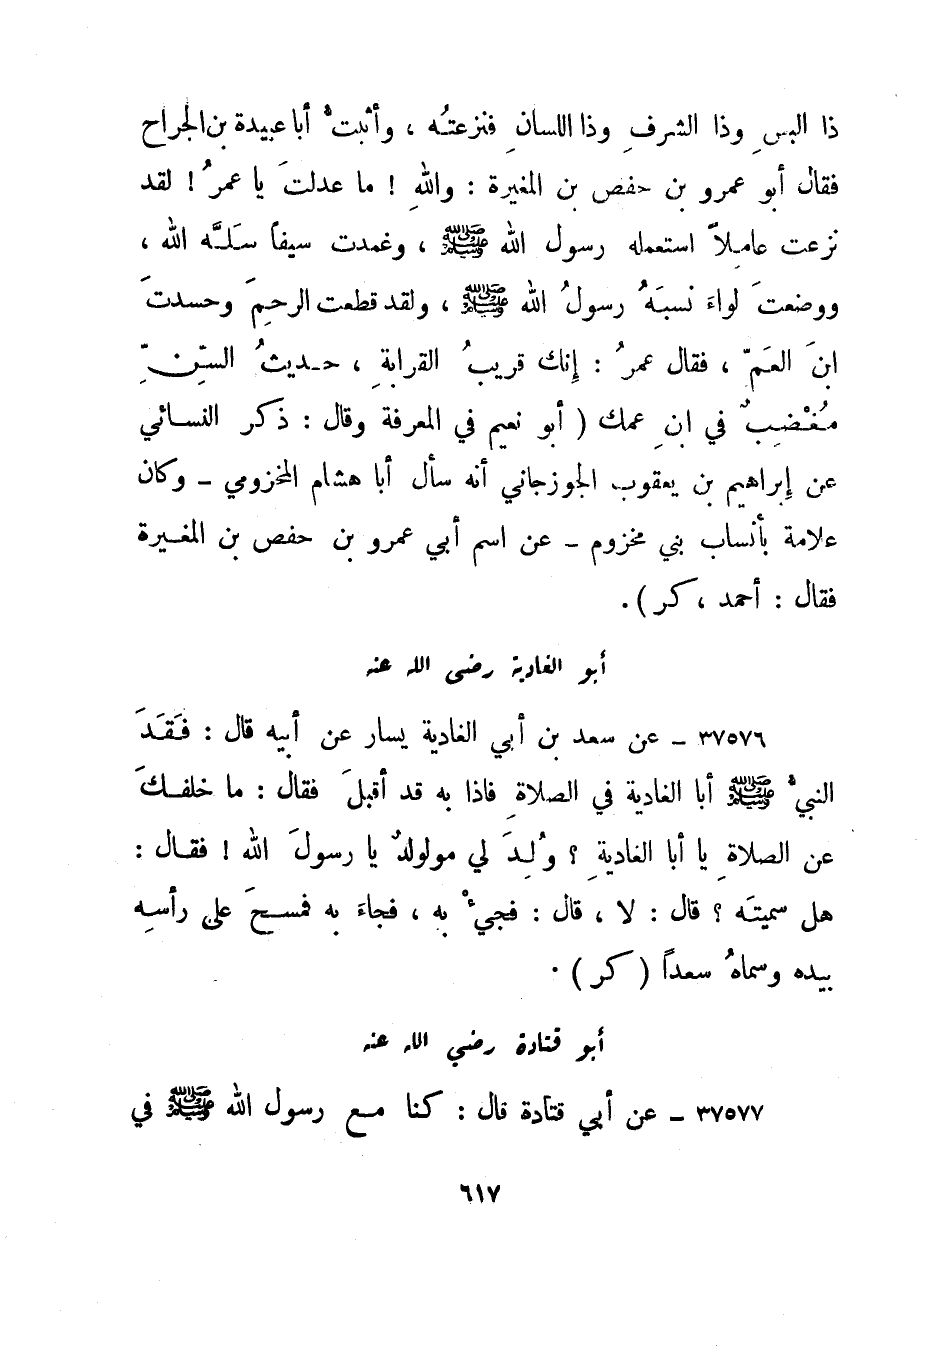 ذا البس ِ وذا الشرف ِ وذا اللسان ِ فنزعتُه ، وأثبتُّ أبا عبيدة بن الجراح
فقال أبو عمرو بن حفص بن المغيرة : واللهِ ! ما عدلتَ يا عمرُ ! لقد
نزعت عاملاً استعمله رسول الله ﷺ ، وغمدت سيفاً سَلَّه الله ،
ووضعتَ لواءَ نسبَهُ رسولُ الله ﷺ ، ولقد قطعت الرحمَ وحسدتَ
ابنَ العَمّ ، فقال عمرُ : إنك قريبُ القرابة ِ ، حديثُ السّنِّ
مُغْضِبٌ في ابن ِ عمك ( أبو نعيم في المعرفة وقال : ذكر النسائي
عن إبراهيم بن يعقوب الجوزجاني أنه سأل أبا هشام المخزومي ـ وكان
علامة بأنساب بني مخزوم ـ عن اسم أبي عمرو بن حفص بن المغيرة
فقال : أحمد ، كر ) .
أبو الغادية رضى الله عنه
٣٧٥٧٦ ـ عن سعد بن أبي الغادية يسار عن أبيه قال : فَقَدَ
النبيُّ ﷺ أبا الغادية في الصلاة ِ فاذا به قد أقبلَ فقال : ما خلفكَ
عن الصلاة ِ يا أبا الغادية ِ ؟ وُلِدَ لي مولودٌ يا رسولَ الله ! فقال :
هل سميتَه ؟ قال : لا ، قال : فجيءْ به ، فجاءَ به فمسحَ على رأسِه
بيده وسماهُ سعداً ( كر ) .
أبو قتادة رضي الله عنه
٣٧٥٧٧ ـ عن أبي قتادة قال : كنا مع رسول الله ﷺ في
٦١٧